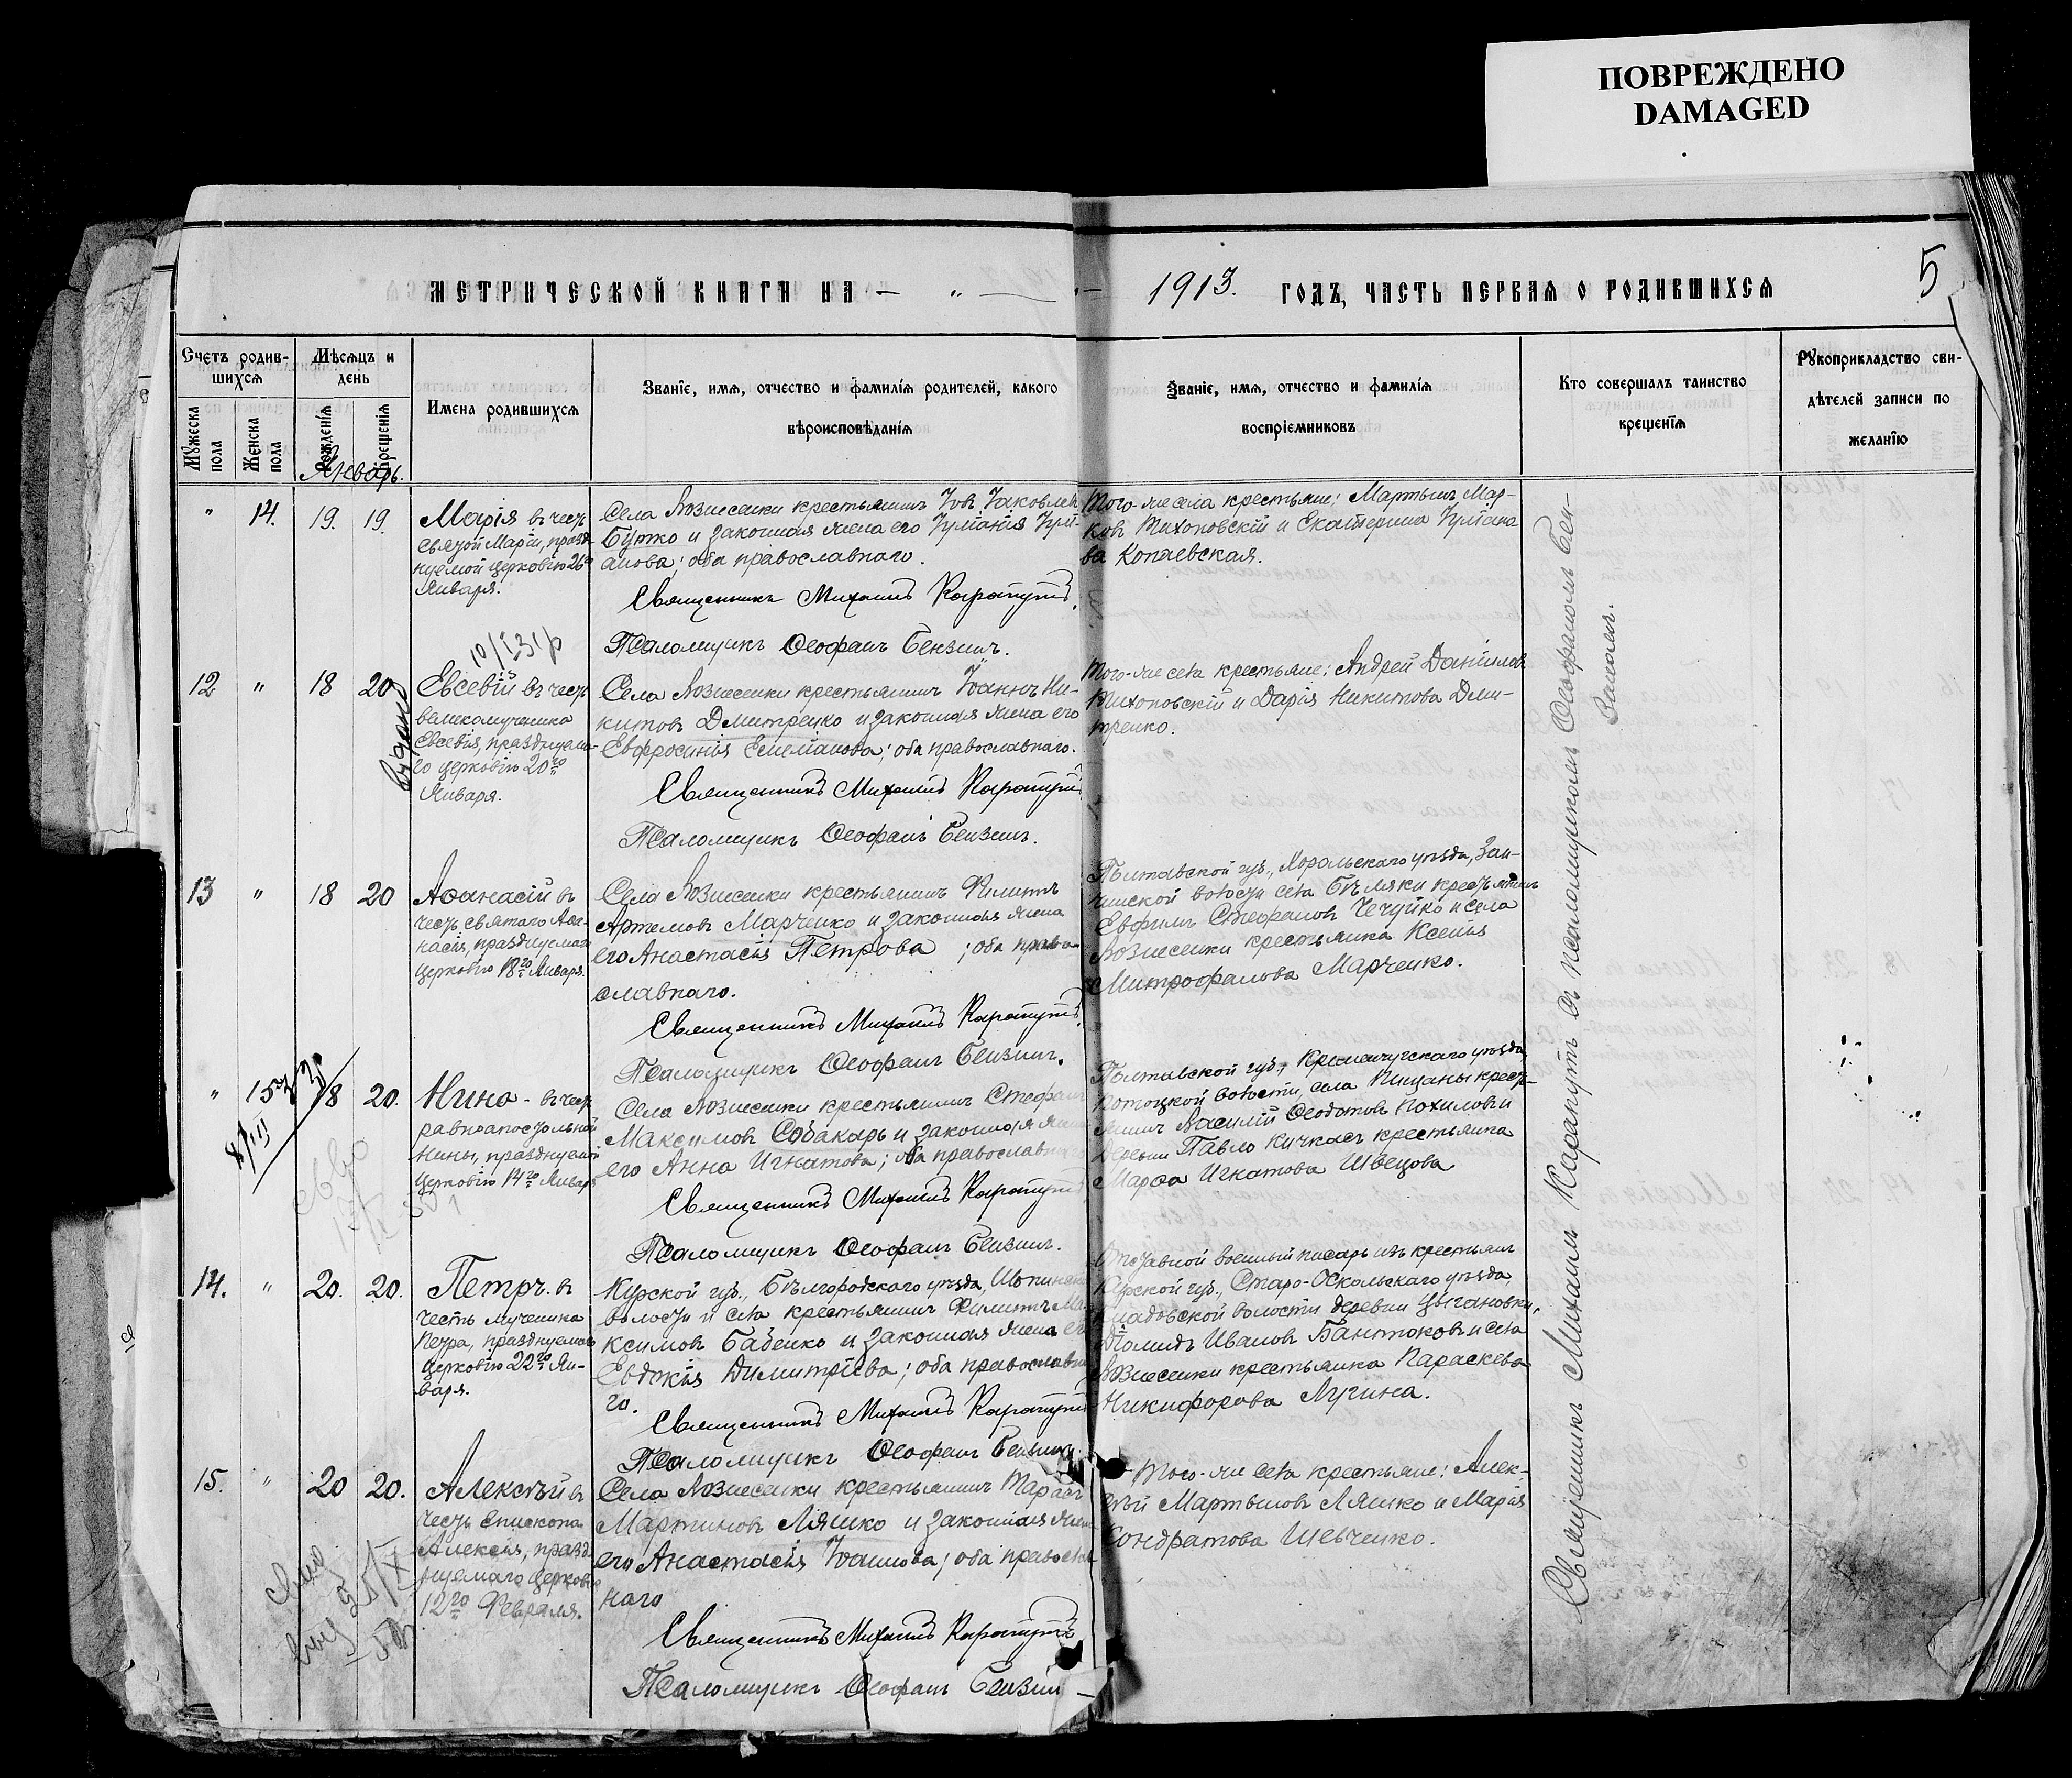 ПОВРЕЖДЕНО
DAMAGED
МЕТРИЧЕСКОЙ КНИГИ НА — " —
1913. ГОДЪ, ЧАСТЬ ПЕРВАЯ О РОДИВШИХСЯ
5
Счетъ родив-
шихся
Мужеска
пола
Женска
пола
Мѣсяцъ и
день
Рожденія
Крещенія
Январь.
Имена родившихся
Званіе, имя, отчество и фамилія родителей, какого
вѣроисповѣданія
Званіе, имя, отчество и фамилія
воспріемниковъ
Кто совершалъ таинство
крещенія
Рукоприкладство сви-
дѣтелей записи по
желанію
" 14. 19. 19.
Марія въ честь
святой Маріи, празд-
нуемой церковію 26го
Января.
Села Вознесенки крестьянинъ Іовъ Іаковлевъ
Бутко и законная жена его Іуліанія Іулі-
анова; оба православнаго.
Священникъ Михаилъ Карапутъ.
Псаломщикъ Ѳеофанъ Бензинъ.
Того-же села крестьяне: Мартынъ Мар-
ковъ Тихоповскій и Екатерина Іуліано
ва Копаевская.
12 " 18 20
Евсевій въ честь
великомученика
Евсевія, празднуема-
го церковію 20го
Января.
Села Вознесенки крестьянинъ Іоаннъ Ни-
китовъ Дмитренко и законная жена его
Евфросинія Емеліанова; оба православнаго.
Священникъ Михаилъ Карапутъ.
Псаломщикъ Ѳеофанъ Бензинъ.
Того-же села крестьяне: Андрей Даниловъ
Тихоповскій и Дарія Никитова Дми-
тренко.
13 " 18 20
Аѳанасій въ
честь святаго Аѳа-
насія, празднуемаго
церковію 18го Января.
Села Вознесенки крестьянинъ Филиппъ
Артемовъ Марченко и законная жена
его Анастасія Петрова ; оба право-
славнаго.
Священникъ Михаилъ Карапутъ.
Псаломщикъ Ѳеофанъ Бензинъ.
Полтавской губ., Хорольскаго уѣзда, Зап-
ской волости села Бѣляки крестьянинъ
Евфимъ Стефановъ Чечуйко и села
Вознесенки крестьянка Ксенія
Митрофанова Марченко.
" 15 18 20.
Нина - въ честь
равноапостольной
Нины, празднуемой
церковію 14го Января
Села Вознесенки крестьянинъ Стефанъ
Максимовъ Собакарь и законная жена
его Анна Игнатова; оба православнаго
Священникъ Михаилъ Карапутъ
Псаломщикъ Ѳеофанъ Бензинъ.
Полтавской губ., Кременчугскаго уѣзда
Потоцкой волости, села Пищаны кресть-
янинъ Василій Ѳеодотовъ Похилов и
деревни Павло Кичкасъ крестьянка
Марѳа Игнатова Швецова
14. " 20. 20.
Петръ въ
честь мученика
Петра, празднуемаго
церковію 22го Ян-
варя.
Курской губ., Бѣлгородскаго уѣзда, Шопинской
волости и села крестьянинъ Филиппъ Ма-
ксимовъ Бабенко и законная жена его
Евдокія Димитріева; оба православна
го.
Священникъ Михаилъ Карапутъ
Псаломщикъ Ѳеофанъ Бензинъ.
Отставной военный писарь изъ крестьянъ
Курской губ., Старо-Оскольскаго уѣзда,
волости деревни Цыгановки,
Діомидъ Ивановъ Бантюковъ и села
Вознесенки крестьянка Параскева
Никифорова Лугина.
15. " 20 20.
Алексѣй въ
честь Епископа
Алексія, празд-
нуемаго церковію
12го Февраля.
Села Вознесенки крестьянинъ Тарасъ
Мартиновъ Ляшко и законная жена
его Анастасія Іоаннова; оба правосла
наго
Священникъ Михаилъ Карапутъ
Псаломщикъ Ѳеофанъ Бензинъ
Того-же села крестьяне: Алек-
сѣй Мартыновъ Ляшко и Марія
Кондратова Шевченко.
Священникъ Михаилъ Карапутъ съ псаломщикомъ Ѳеофаномъ Бен-
зиномъ.